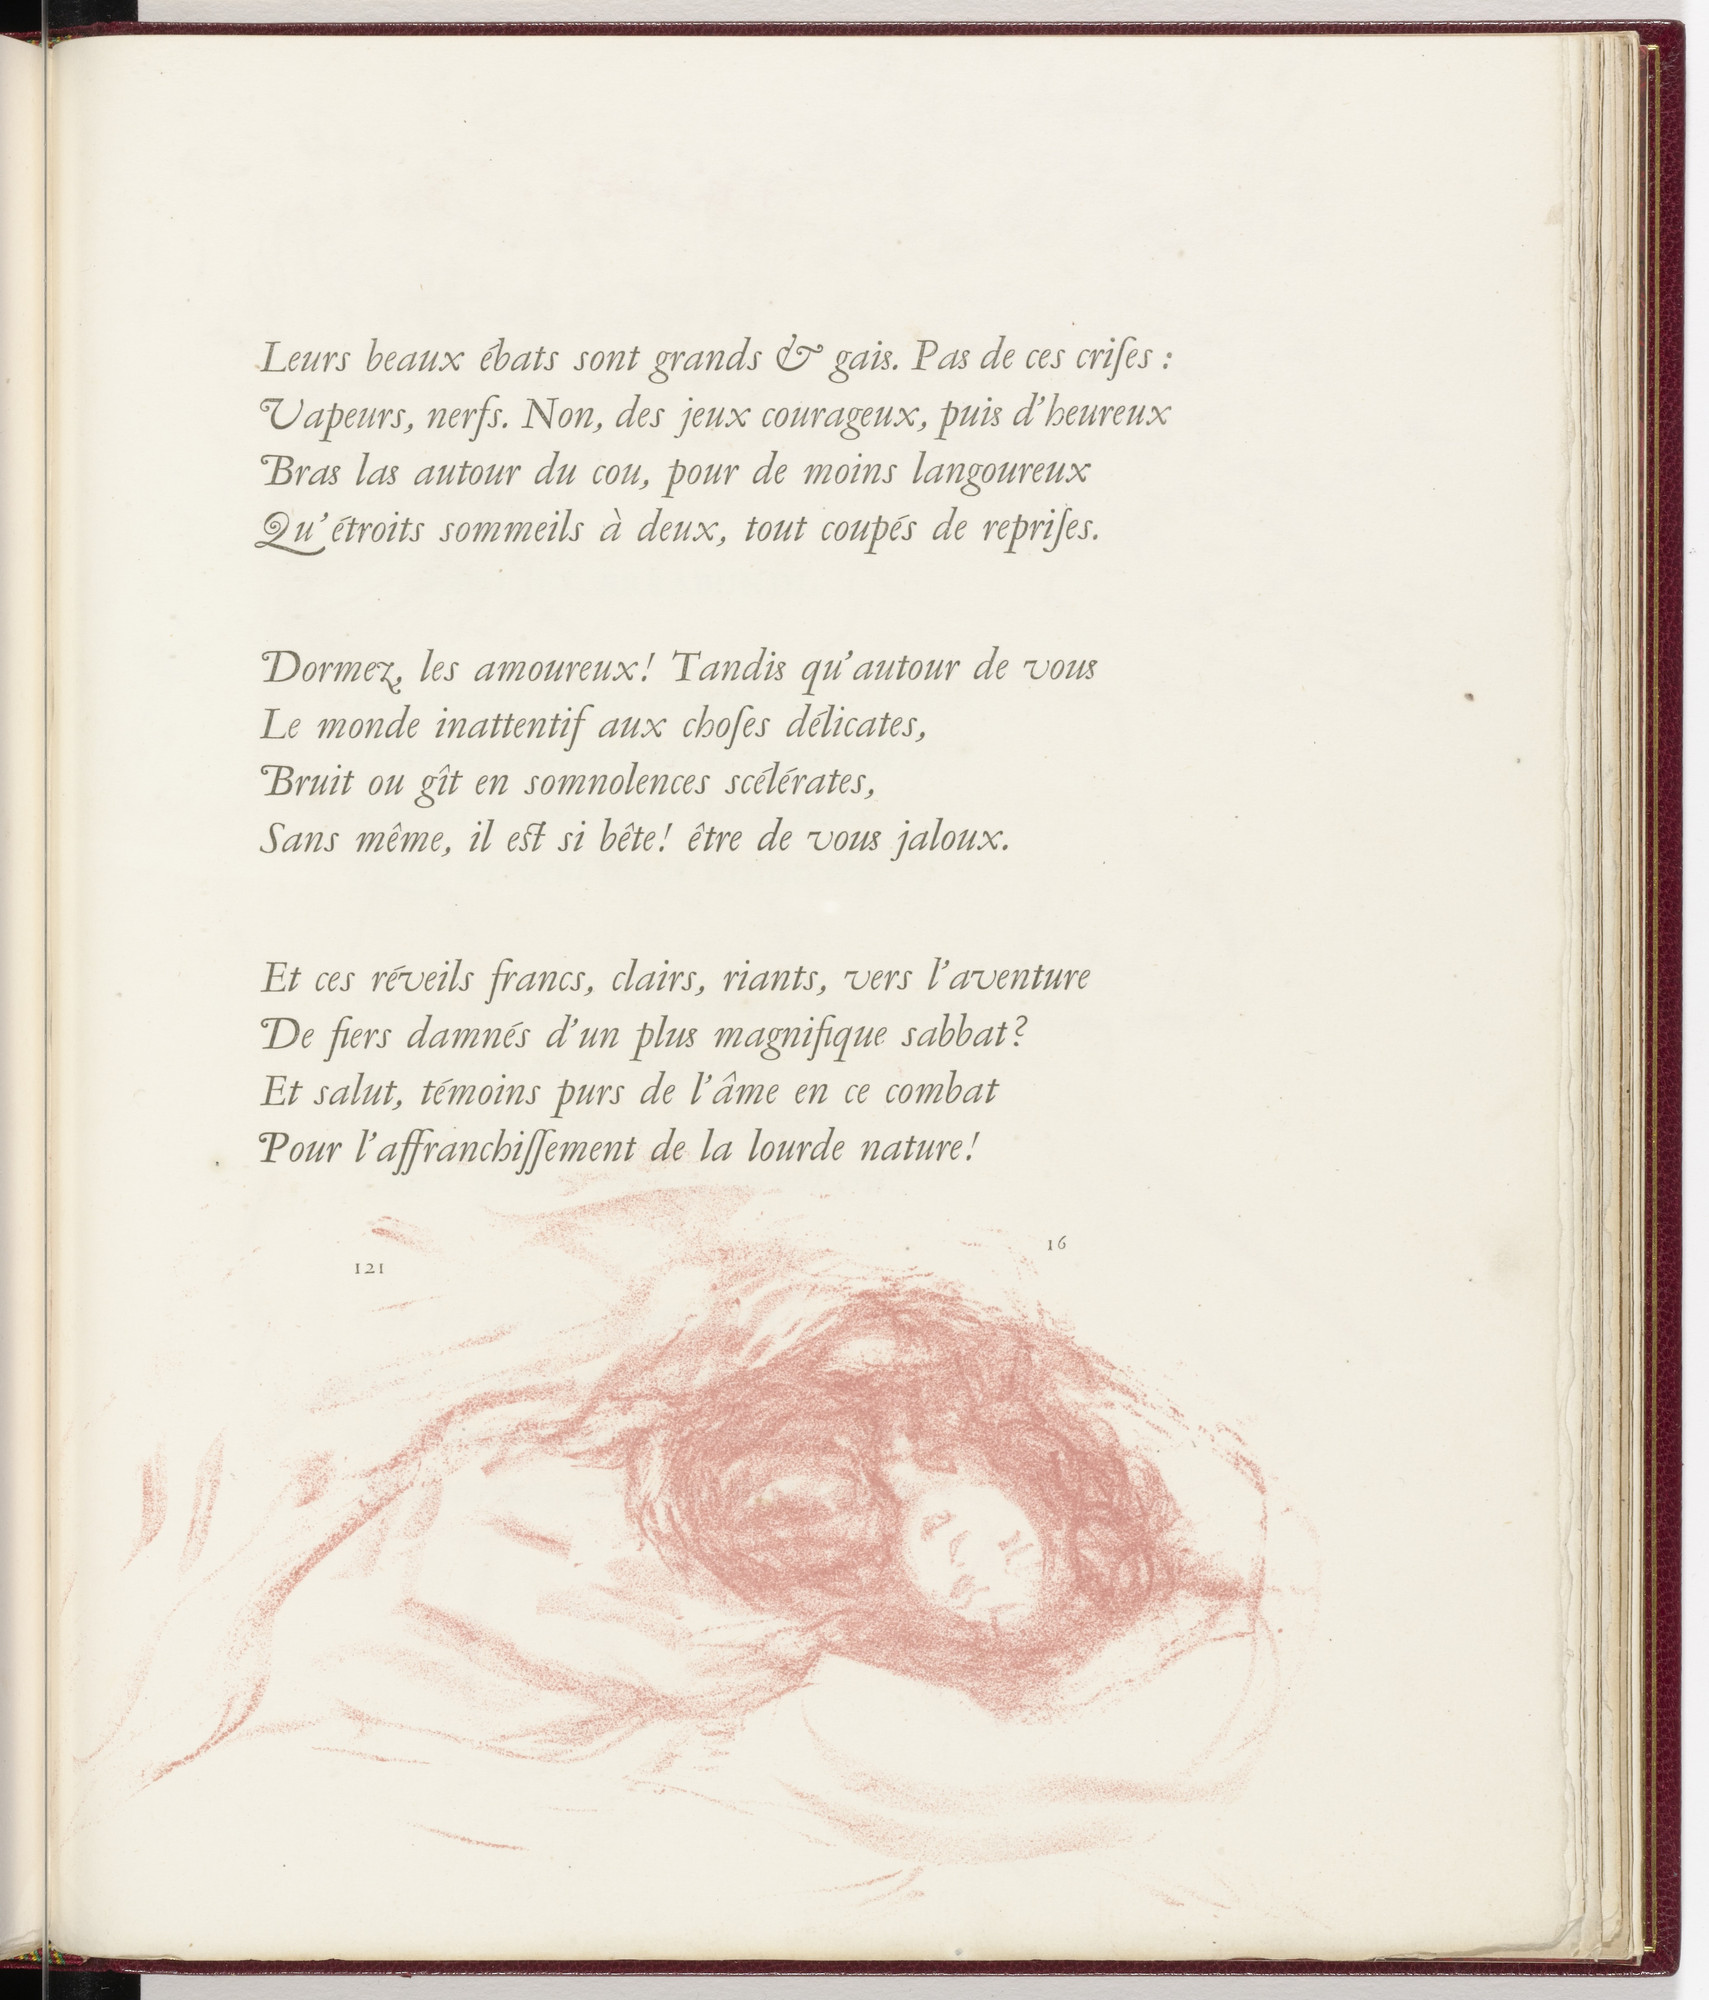 Leurs beaux ébats sont grands & gais. Pas de ces criſes :
Vapeurs, nerfs. Non, des jeux courageux, puis d'heureux
Bras las autour du cou, pour de moins langoureux
Qu'étroits sommeils à deux, tout coupés de repriſes.
Dormez, les amoureux! Tandis qu'autour de vous
Le monde inattentif aux choſes délicates,
Bruit ou gît en somnolences scélérates,
Sans même, il est si bête! être de vous jaloux.
Et ces réveils francs, clairs, riants, vers l'aventure
De fiers damnés d'un plus magnifique sabbat?
Et salut, témoins purs de l'âme en ce combat
Pour l'affranchiſſement de la lourde nature!
16
121